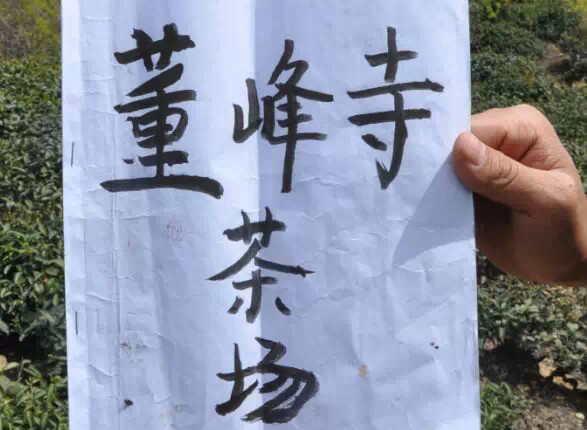 董峰寺
茶
场